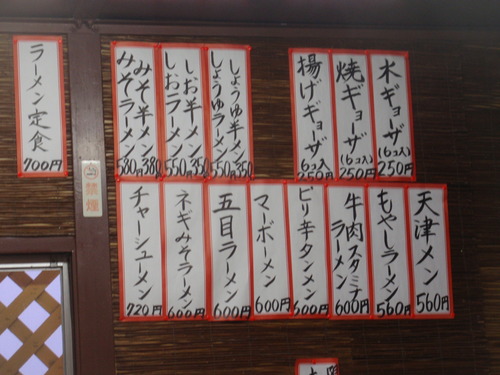 ラーメン定食
700円
みそ半メン
みそラーメン
580円 380
しお半メン
しおラーメン
550円 350
しょうゆ半メン
しょうゆラーメン
550円 350
揚げギョーザ
(6コ入)
250円
焼ギョーザ
(6コ入)
250円
水ギョーザ
(6コ入)
250円
禁煙
チャーシューメン
720円
ネギみそラーメン
600円
五目ラーメン
600円
マーボーメン
600円
ピリ辛タンメン
600円
牛肉スタミナ
ラーメン
600円
もやしラーメン
560円
天津メン
560円